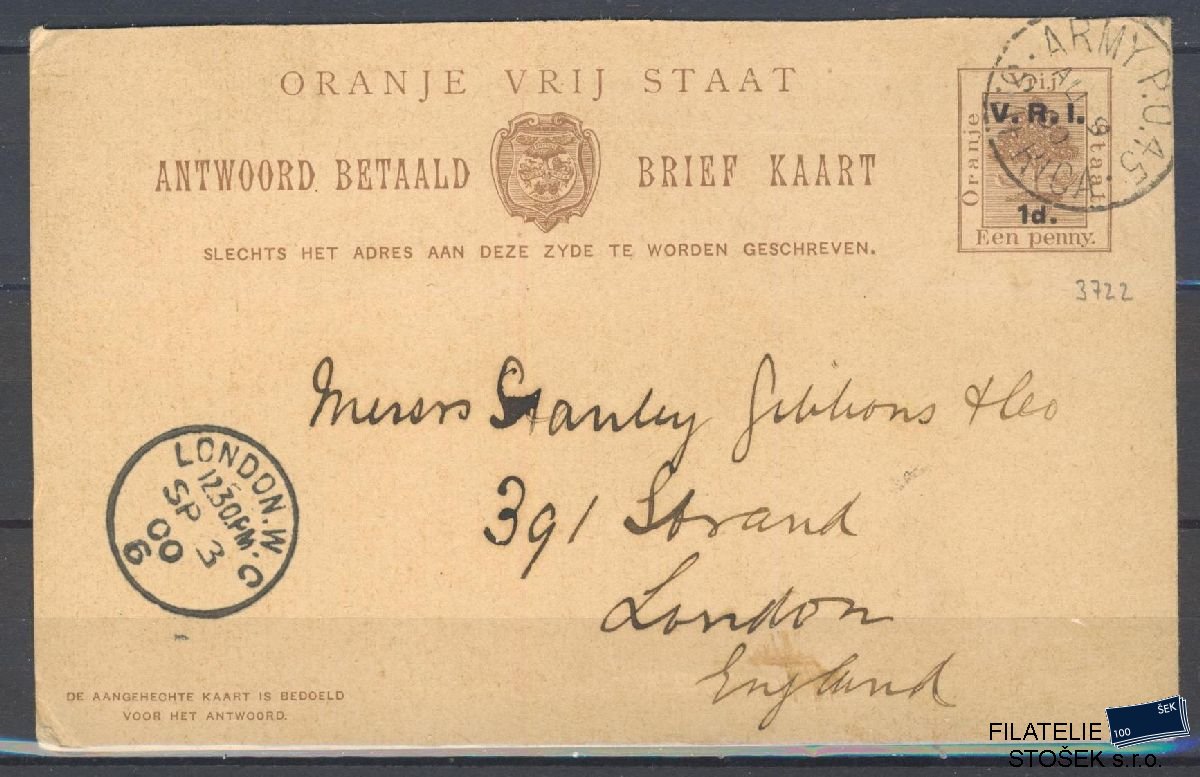 ORANJE VRIJ STAAT
ANTWOORD BETAALD BRIEF KAART
SLECHTS HET ADRES AAN DEZE ZYDE TE WORDEN GESCHREVEN.
ARMY P.O. 45
S. AFRICA
AU 8
Vrij
Oranje
Staat.
V. R. I.
1d.
Een penny.
3722
Messrs Stanley Gibbons & Co
391 Strand
London
England
LONDON. W. C
12.30PM
SP 3
00
6
DE AANGEHECHTE KAART IS BEDOELD
VOOR HET ANTWOORD.
ŠEK
100
FILATELIE
STOŠEK s.r.o.